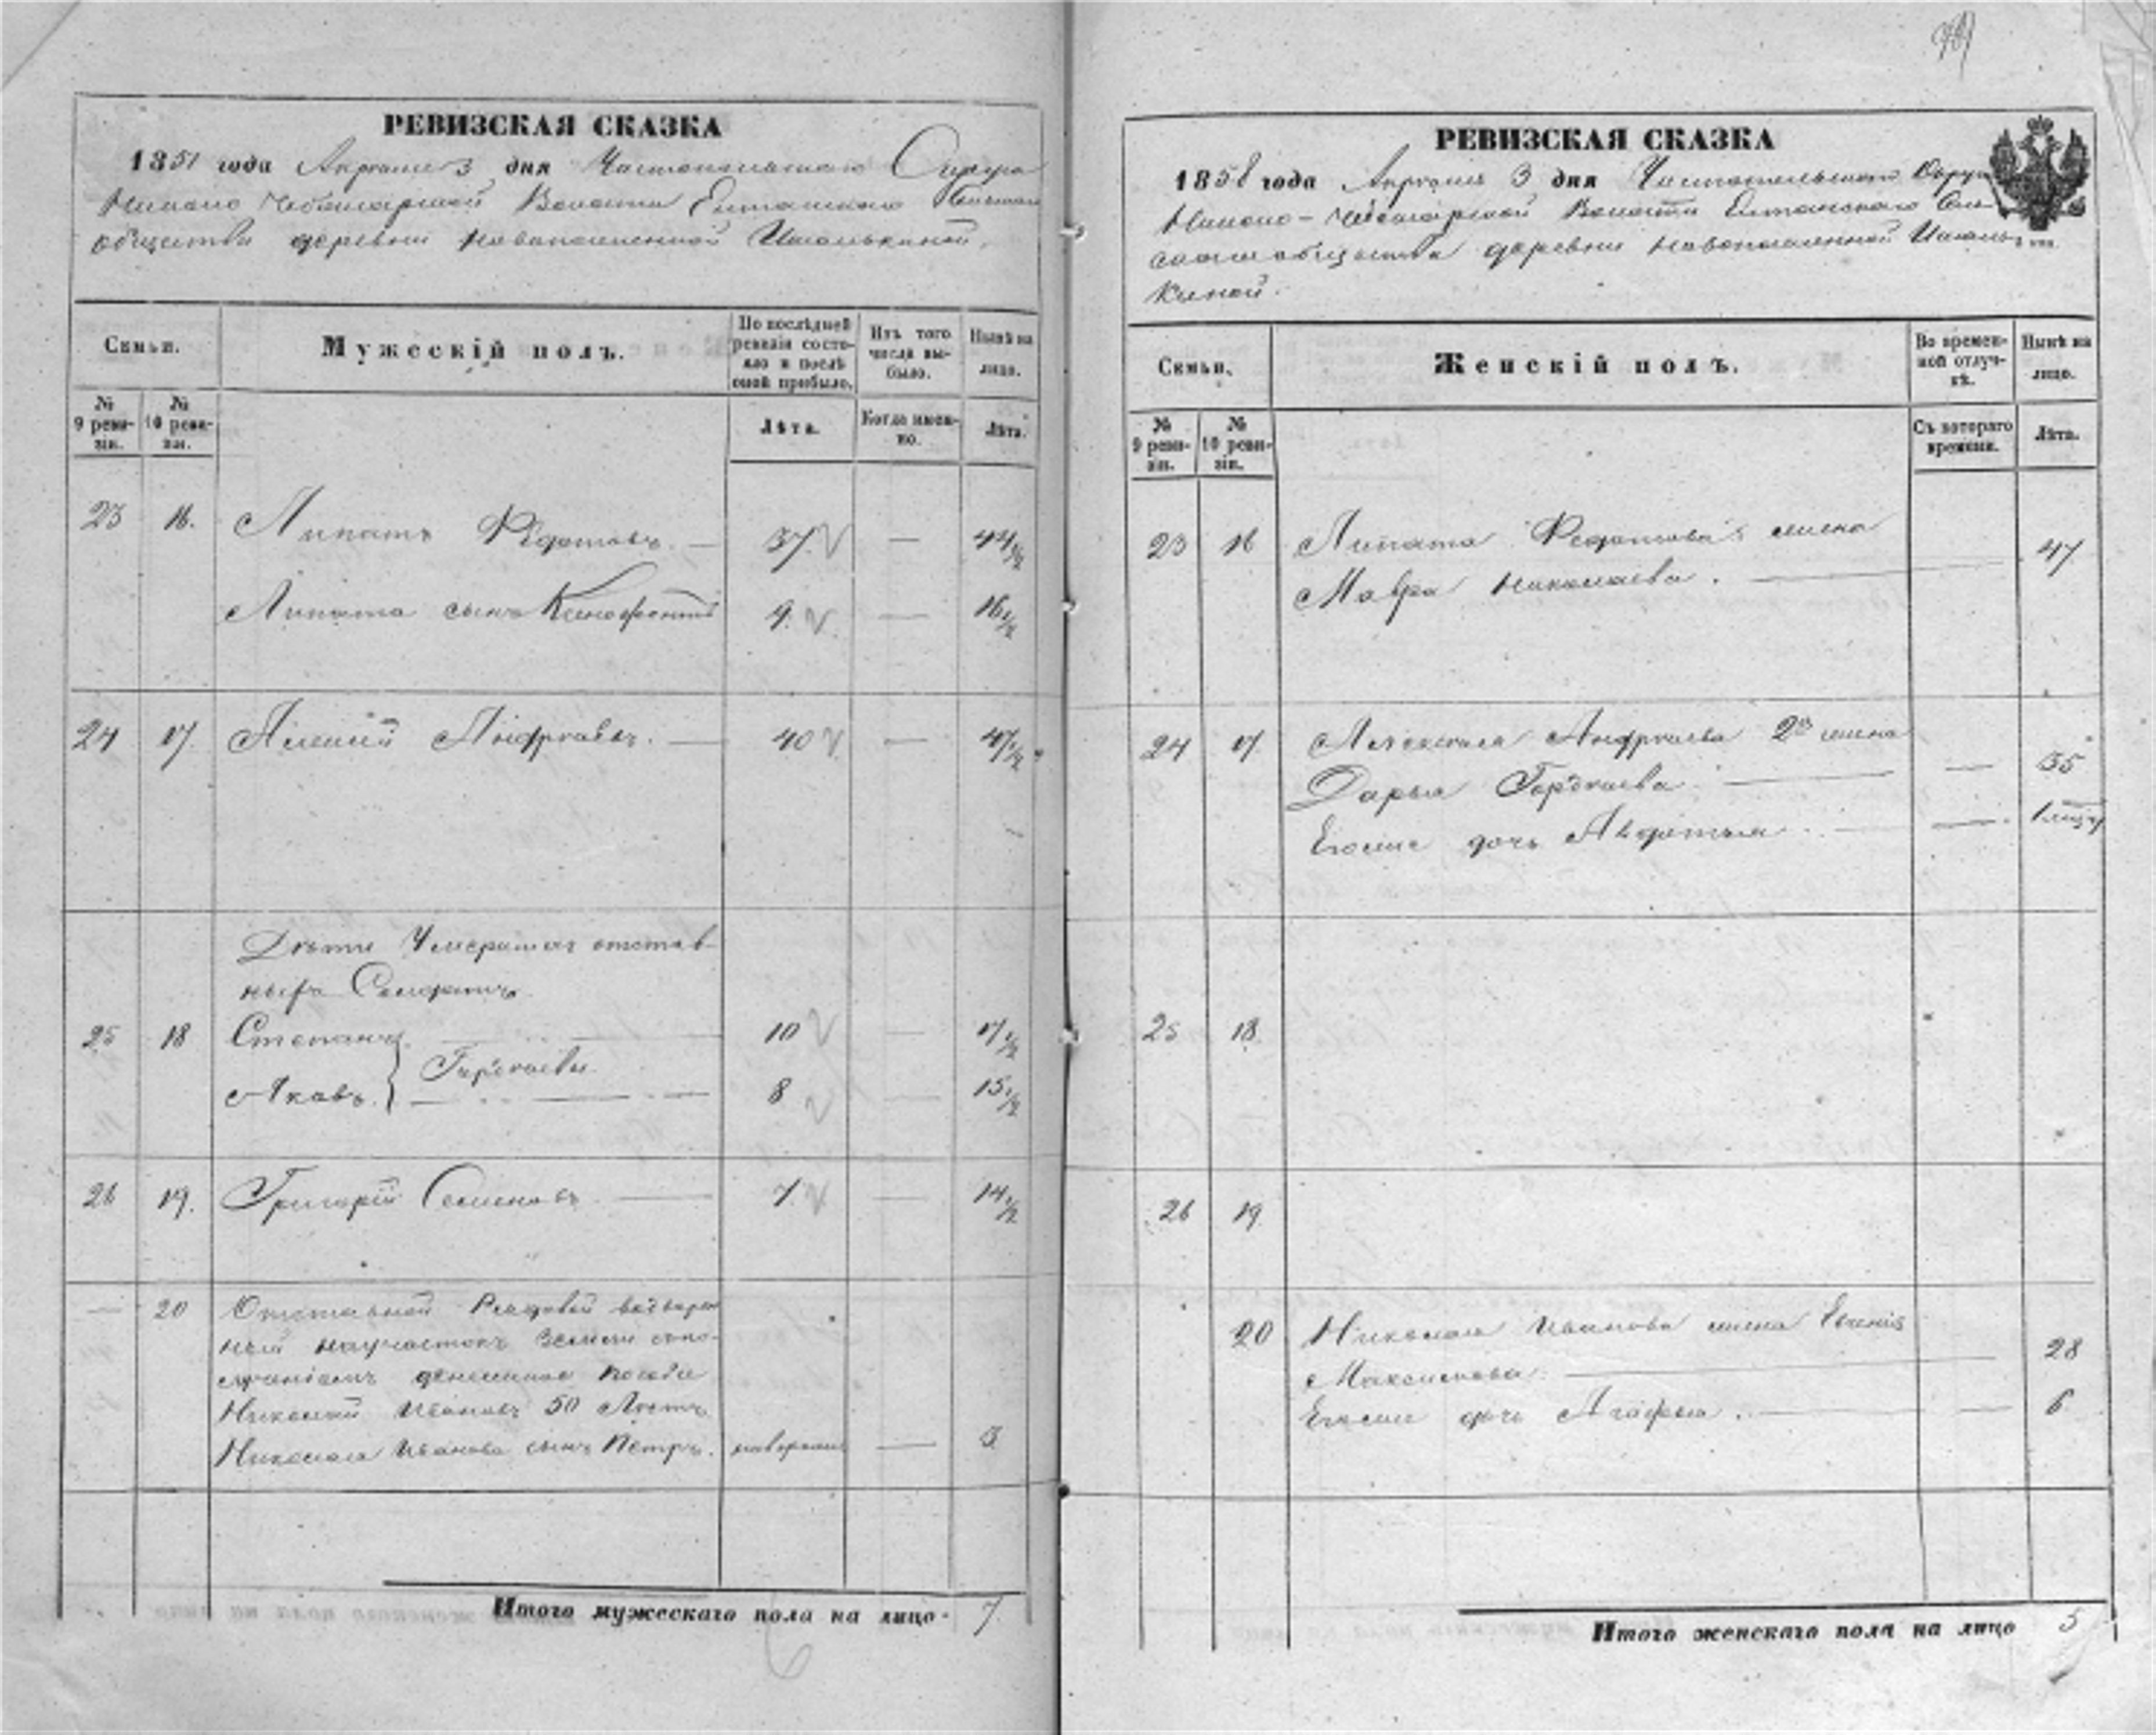 РЕВИЗСКАЯ СКАЗКА
1851 года Апреля 3 дня Чистопольскаго Округа
Волости Елтанскаго
общества деревни Новопоселенной
Семьи.
Мужескій полъ.
По послѣдней ревизіи состояло и послѣ оной прибыло.
Изъ того числа выбыло.
Нынѣ на лицо.
№ 9 ревизіи.
№ 10 ревизіи.
Лѣта.
Когда именно.
Лѣта.
23 16. Липатъ Федотовъ. — 37. — 44 1/2
Липата сынъ Ксенофонтъ 9. — 16 1/2
24 17. Алексѣй Андреевъ. — 40 — 47 1/2
Дѣти умершихъ отстав-
ныхъ Солдатъ
25 18 Степанъ 10 — 17 1/2
Гордѣевы
Яковъ. 8 — 15 1/2
26 19. Григорій Семеновъ — 7. — 14 1/2
— 20 Отставной Рядовой водворен
ный на участокъ земли
денежное
Николай Ивановъ 50 Лѣтъ
Николая Иванова сынъ Петръ. — 3.
Итого мужескаго пола на лицо 7.
РЕВИЗСКАЯ СКАЗКА
1858 года Апреля 3 дня Чистопольскаго Округа
Волости Елтанскаго Сель-
скаго общества деревни Новопоселенной
киной.
Семьи.
Женскій полъ.
Во временной отлучкѣ.
Нынѣ на лицо.
№ 9 ревизіи.
№ 10 ревизіи.
Съ котораго времени.
Лѣта.
23 16 Липата Федотова жена
Мавра Николаева. — 47
24 17 Алексѣя Андреева 2я жена
Дарья Гордѣева — — 35
Егоже дочь Авдотья — —
25 18.
26 19
20 Николая Иванова жена
Максимова — 28
Егоже дочь Агафья. — — 6
Итого женскаго пола на лицо 5